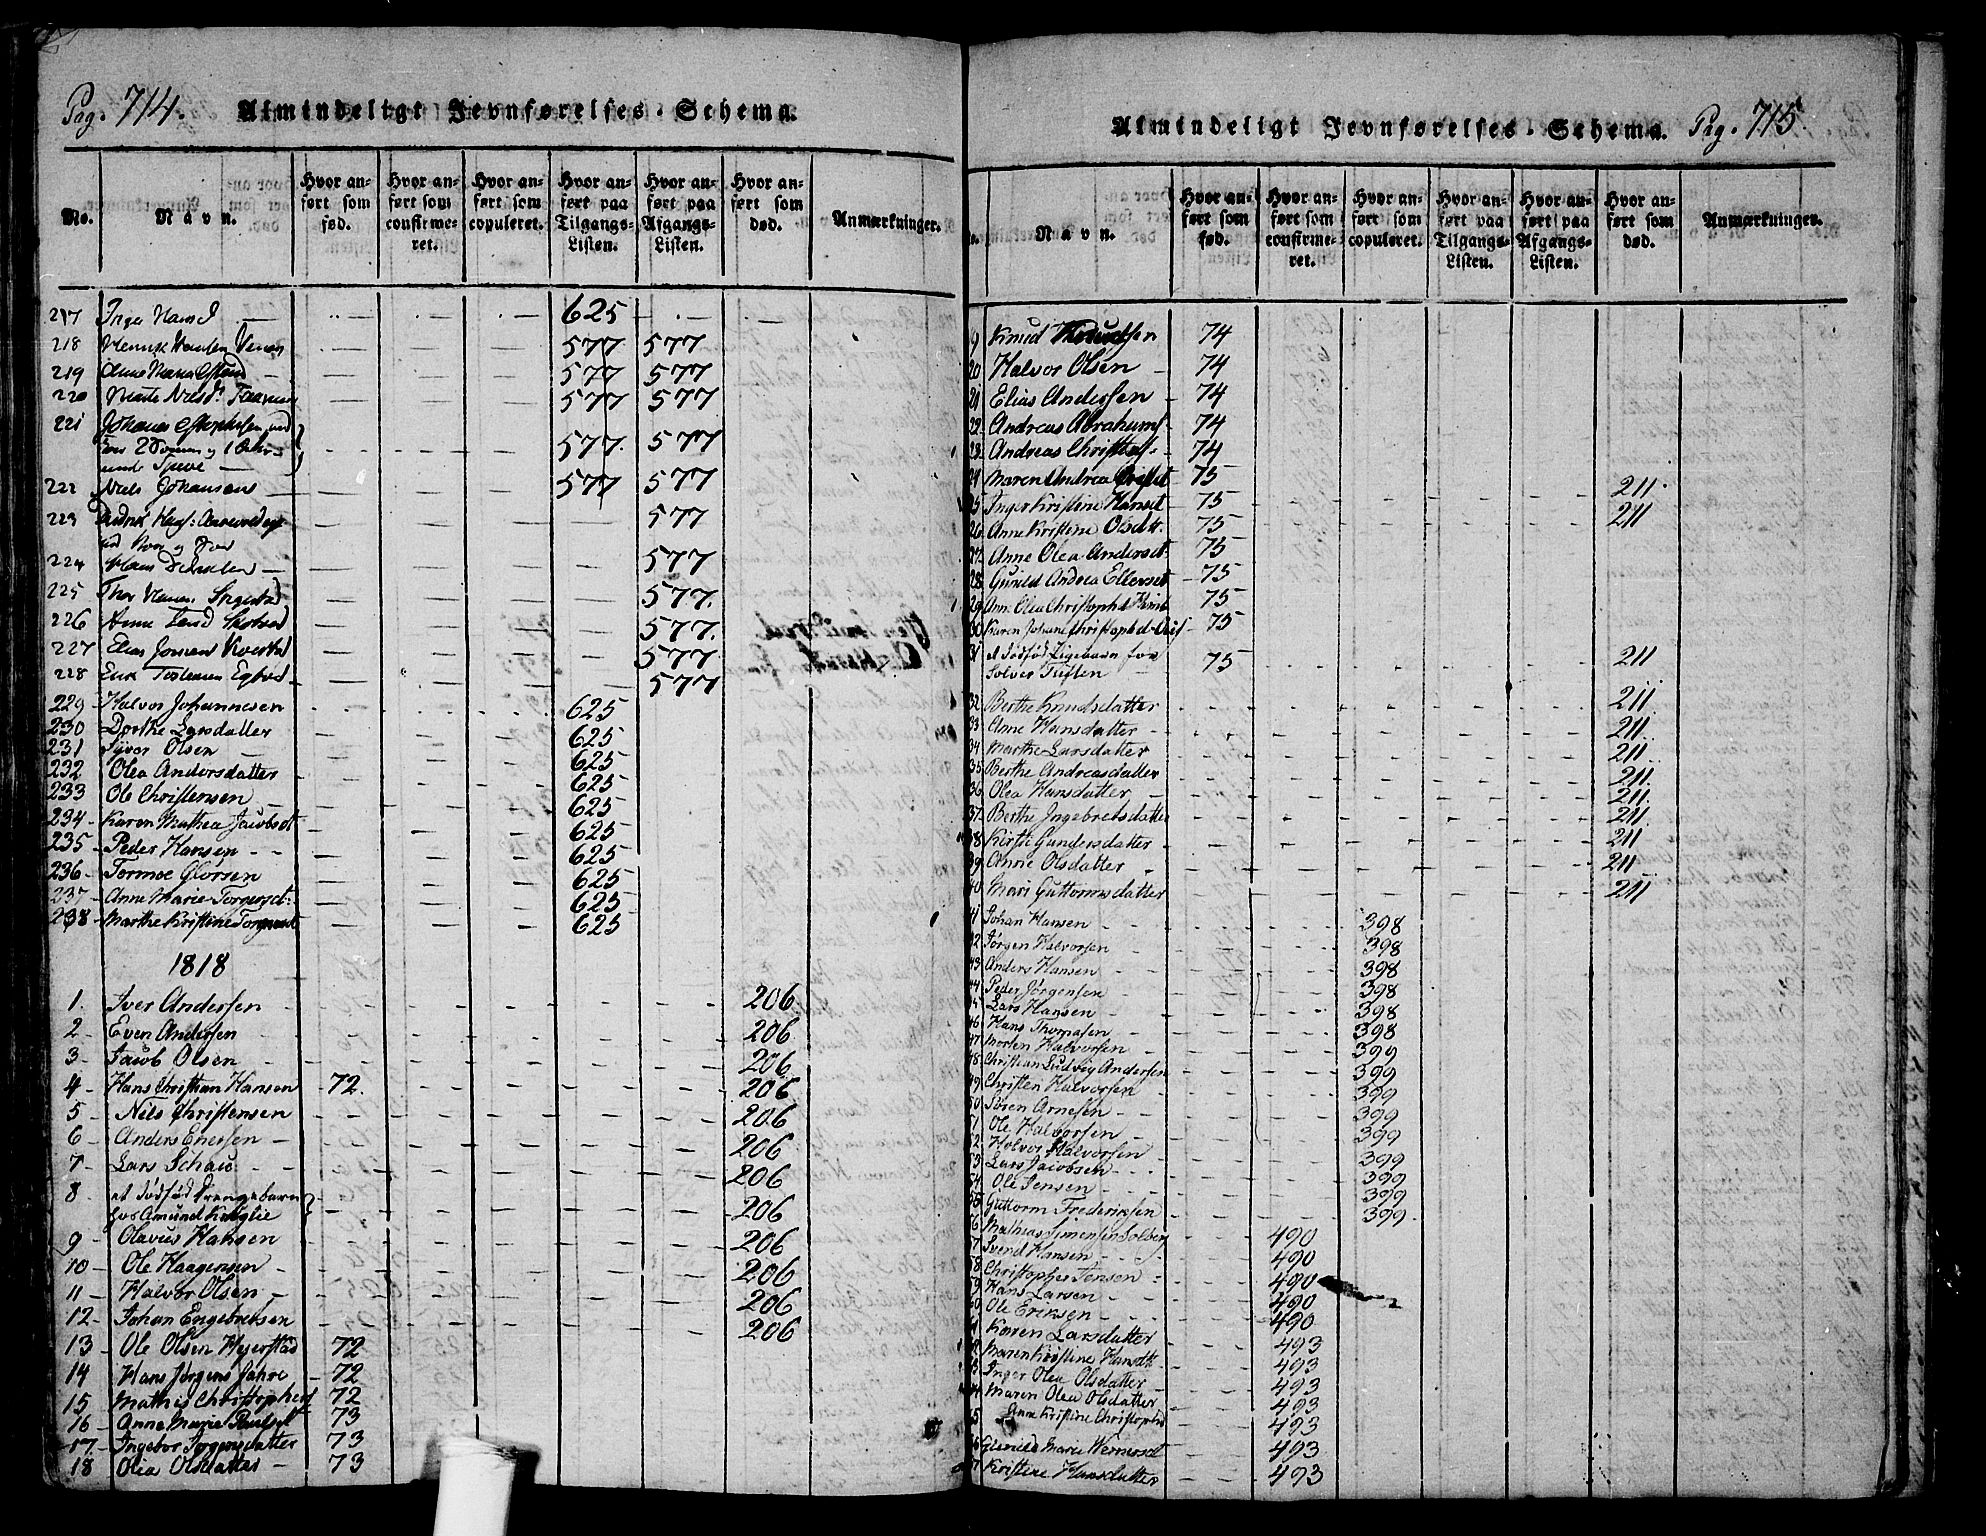 Pag. 714. Almindeligt Jevnførelses-Schema.
No. Navn. Hvor anført som fød. Hvor anført som confirmeret. Hvor anført som copuleret. Hvor anført paa Tilgangs-Listen. Hvor anført paa Afgangs-Listen. Hvor anført som død. Anmærkninger.
217 Inger Hansd 625
218 Henrik Hansen 577 577
219 Anne Maria 577 577
220 Marte Nielsd. 577 577
221 Johannes
2 Sønner og 1 577 577
222 Niels Johansen 577 577
223 577
224 Hans 577
225 Thor Hansen 577.
226 Anne 577.
227 Elias Jonsen 577
228 577
229 Halvor Johannesen 625
230 Dorthe Larsdatter 625
231 Syver Olsen 625
232 Olea Andersdatter 625
233 Ole Christensen 625
234 Karen Mathea Jacobsdt 625
235 Peder Hansen 625
236 Tormoe Glorsen 625
237 Anne Marie Torgersdt: 625
238 Marthe Kristine 625
1818
1. Iver Andersen 206
2 Even Andersen 206
3 Jacob Olsen 206
4 Hans Christian Hansen 72. 206
5 Nils Christensen 206
6 Anders Enersen 206
7 Lars Schau 206
8 et dødfød Drengebarn
hos Amund Kroglie 206
9 Olavus Hansen 206
10 Ole Haagensen 206
11 Halvor Olsen 206
12 Johan Engebretsen 206
13 Ole Olsen Hejerstad 72
14 Hans Jørgens Jahre 72
15 Mathis Christophers 72
16 Anne Marie Paulsdt 73
17 Ingebor Jørgensdatter 73
18 Olia Olsdatter 73
Almindeligt Jevnførelses-Schema. Pag. 715.
Navn. Hvor anført som fød. Hvor anført som confirmeret. Hvor anført som copuleret. Hvor anført paa Tilgangs-Listen. Hvor anført paa Afgangs-Listen. Hvor anført som død. Anmærkninger.
9 Knud Knudsen 74
20 Halvor Olsen 74
21 Elias Andersen 74
22 Andreas Abrahams 74
23 Andreas Christens 74
24 Maren Andrea 75 211
25 Inger Kristine Hansdt 75 211
26 Anne Kristine Olsdatt. 75
27 Anne Olea Andersdt 75
28 Gunild Andrea Ellevsdt 75
29 Ann Olea Christophd 75
30 Karen Johane Christophsd 75
31 et dødfød Pigebarn fra
Solver Tuften 75 211
32 Berthe Knudsdatter 211
33 Anne Hansdatter 211
34 Marthe Larsdatter 211
35 Berthe Andreasdatter 211
36 Olea Hansdatter 211
37 Berthe Ingebretsdatter 211
38 Kirsti Gundersdatter 211
39 Anne Olsdatter 211
40 Mari Guttormsdatter 211
41 Johan Hansen 398
42 Jørgen Halvorsen 398
43 Anders Hansen 398
44 Peder Jørgensen 398
45 Lars Hansen 398
46 Hans Thomasen 398
47 Morten Halvorsen 399
48 Christian Ludvig Andersen 399
49 Christen Halvorsen 399
50 Søren Arnesen 399
51 Ole Halvorsen 399
52 Halvor Halvorsen 399
53 Lars Jacobsen 399
54 Ole Jensen 399
55 Guttorm Frederiksen 399
56 Mathias Simensen Solberg 490
57 Svend Hansen 490
58 Christopher Jensen 490
59 Hans Larsen 490
60 Ole Eriksen 490
Karen Larsdatter 493
Maren Kristine Hansdt. 493
Inger Olea Olsdatter 493
Maren Olea Olsdatter 493
Anne Kristine Christophsd 493
Gunild Marie Wernersdt 493
Kristine Hansdatter 493